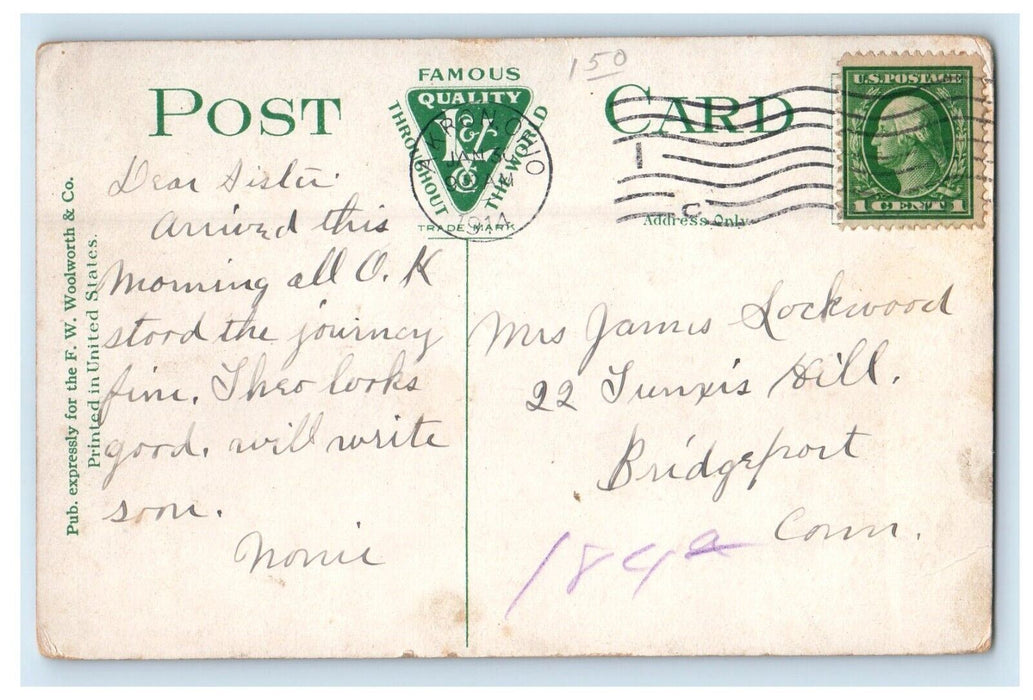 150
FAMOUS
QUALITY
THROUGHOUT THE WORLD
TRADE MARK
POST CARD
AKRON OHIO
JAN 3
1914
U.S. POSTAGE
1 CENT 1
Address Only
Pub. expressly for the F. W. Woolworth & Co.
Printed in United States.
Dear Sister
Arrived this
morning all O.K
stood the journey
fine. Theo looks
good. will write
soon.
Nonie
Mrs James Lockwood
22 Tunxis Hill.
Bridgeport
Conn.
184a